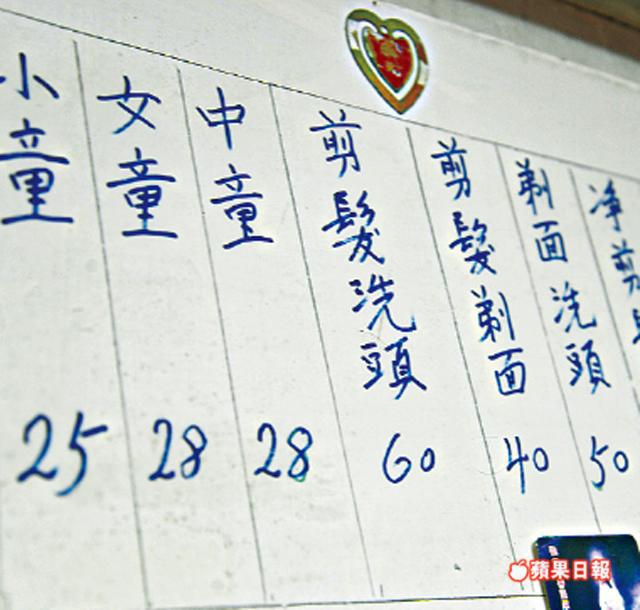 净剪
剃面洗頭 50
剪髮剃面 40
剪髮洗頭 60
中童 28
女童 28
小童 25
蘋果日報